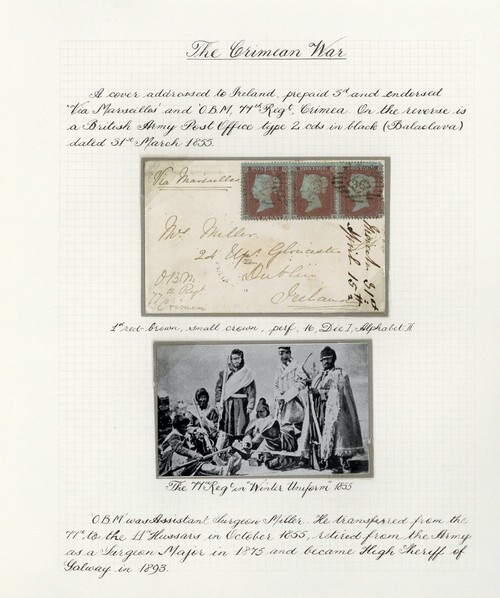 The Crimean War
A cover addressed to Ireland, prepaid 3d and endorsed
'Via Marseilles' and 'O.B.M, 77th Regt, Crimea. On the reverse is
a British Army Post Office type 2 cds in black (Balaclava)
dated 31st March 1855.
Via Marseilles
Mrs Miller
24 Upr. Gloucester
Dublin
Ireland
OBM
77th Regt
Crimea
March 31st
April 15th
1d red-brown, small crown, perf. 16, Die I, Alphabet II
The 77th Regt in "Winter Uniform" 1855
'O.B.M' was Assistant Surgeon Miller. He transferred from the
77th to the 11th Hussars in October 1855, retired from the Army
as a Surgeon Major in 1875 and became High Sheriff of
Galway in 1893.